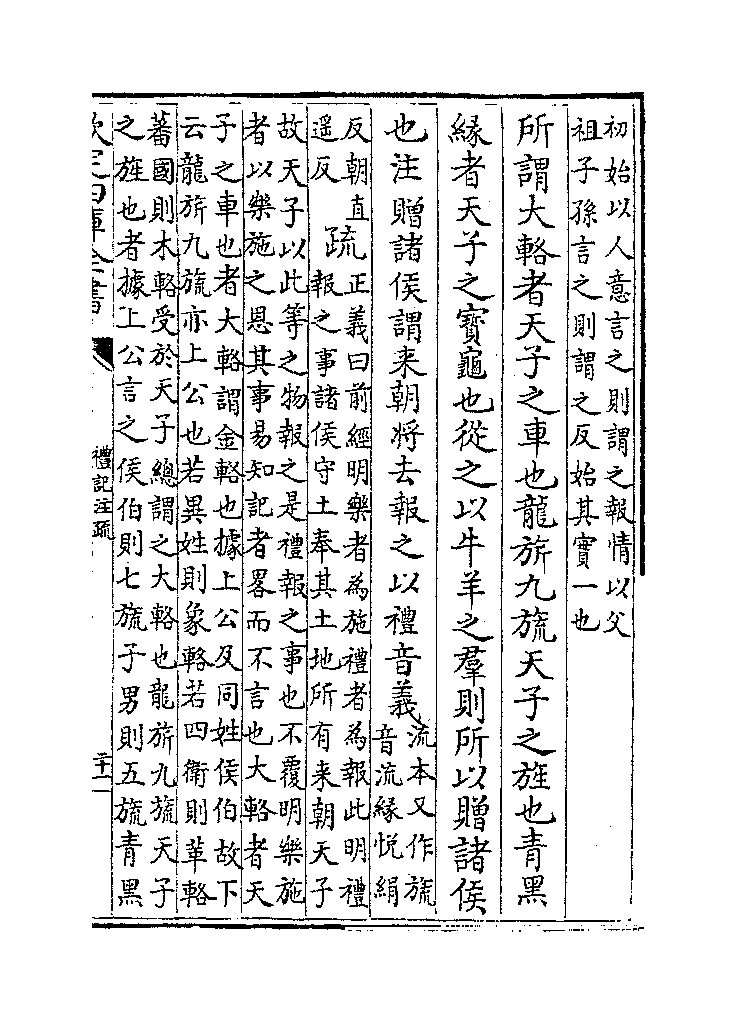 初始以人意言之則謂之報情以父
祖子孫言之則謂之反始其實一也
所謂大輅者天子之車也龍旂九旒天子之旌也青黑
緣者天子之寶龜也從之以牛羊之羣則所以贈諸侯
也注贈諸侯謂来朝將去報之以禮音義
流本又作旒
音流緣悅絹
反朝直
遥反
疏
正義曰前經明樂者為施禮者為報此明禮
報之事諸侯守土奉其土地所有来朝天子
故天子以此等之物報之是禮報之事也不覆明樂施
者以樂施之恩其事易知記者畧而不言也大輅者天
子之車也者大輅謂金輅也據上公及同姓侯伯故下
云龍旂九旒亦上公也若異姓則象輅若四衛則革輅
蕃國則木輅受於天子總謂之大輅也龍旂九旒天子
之旌也者據上公言之侯伯則七旒子男則五旒青黑
欽定四庫全書
禮記注疏
二十二